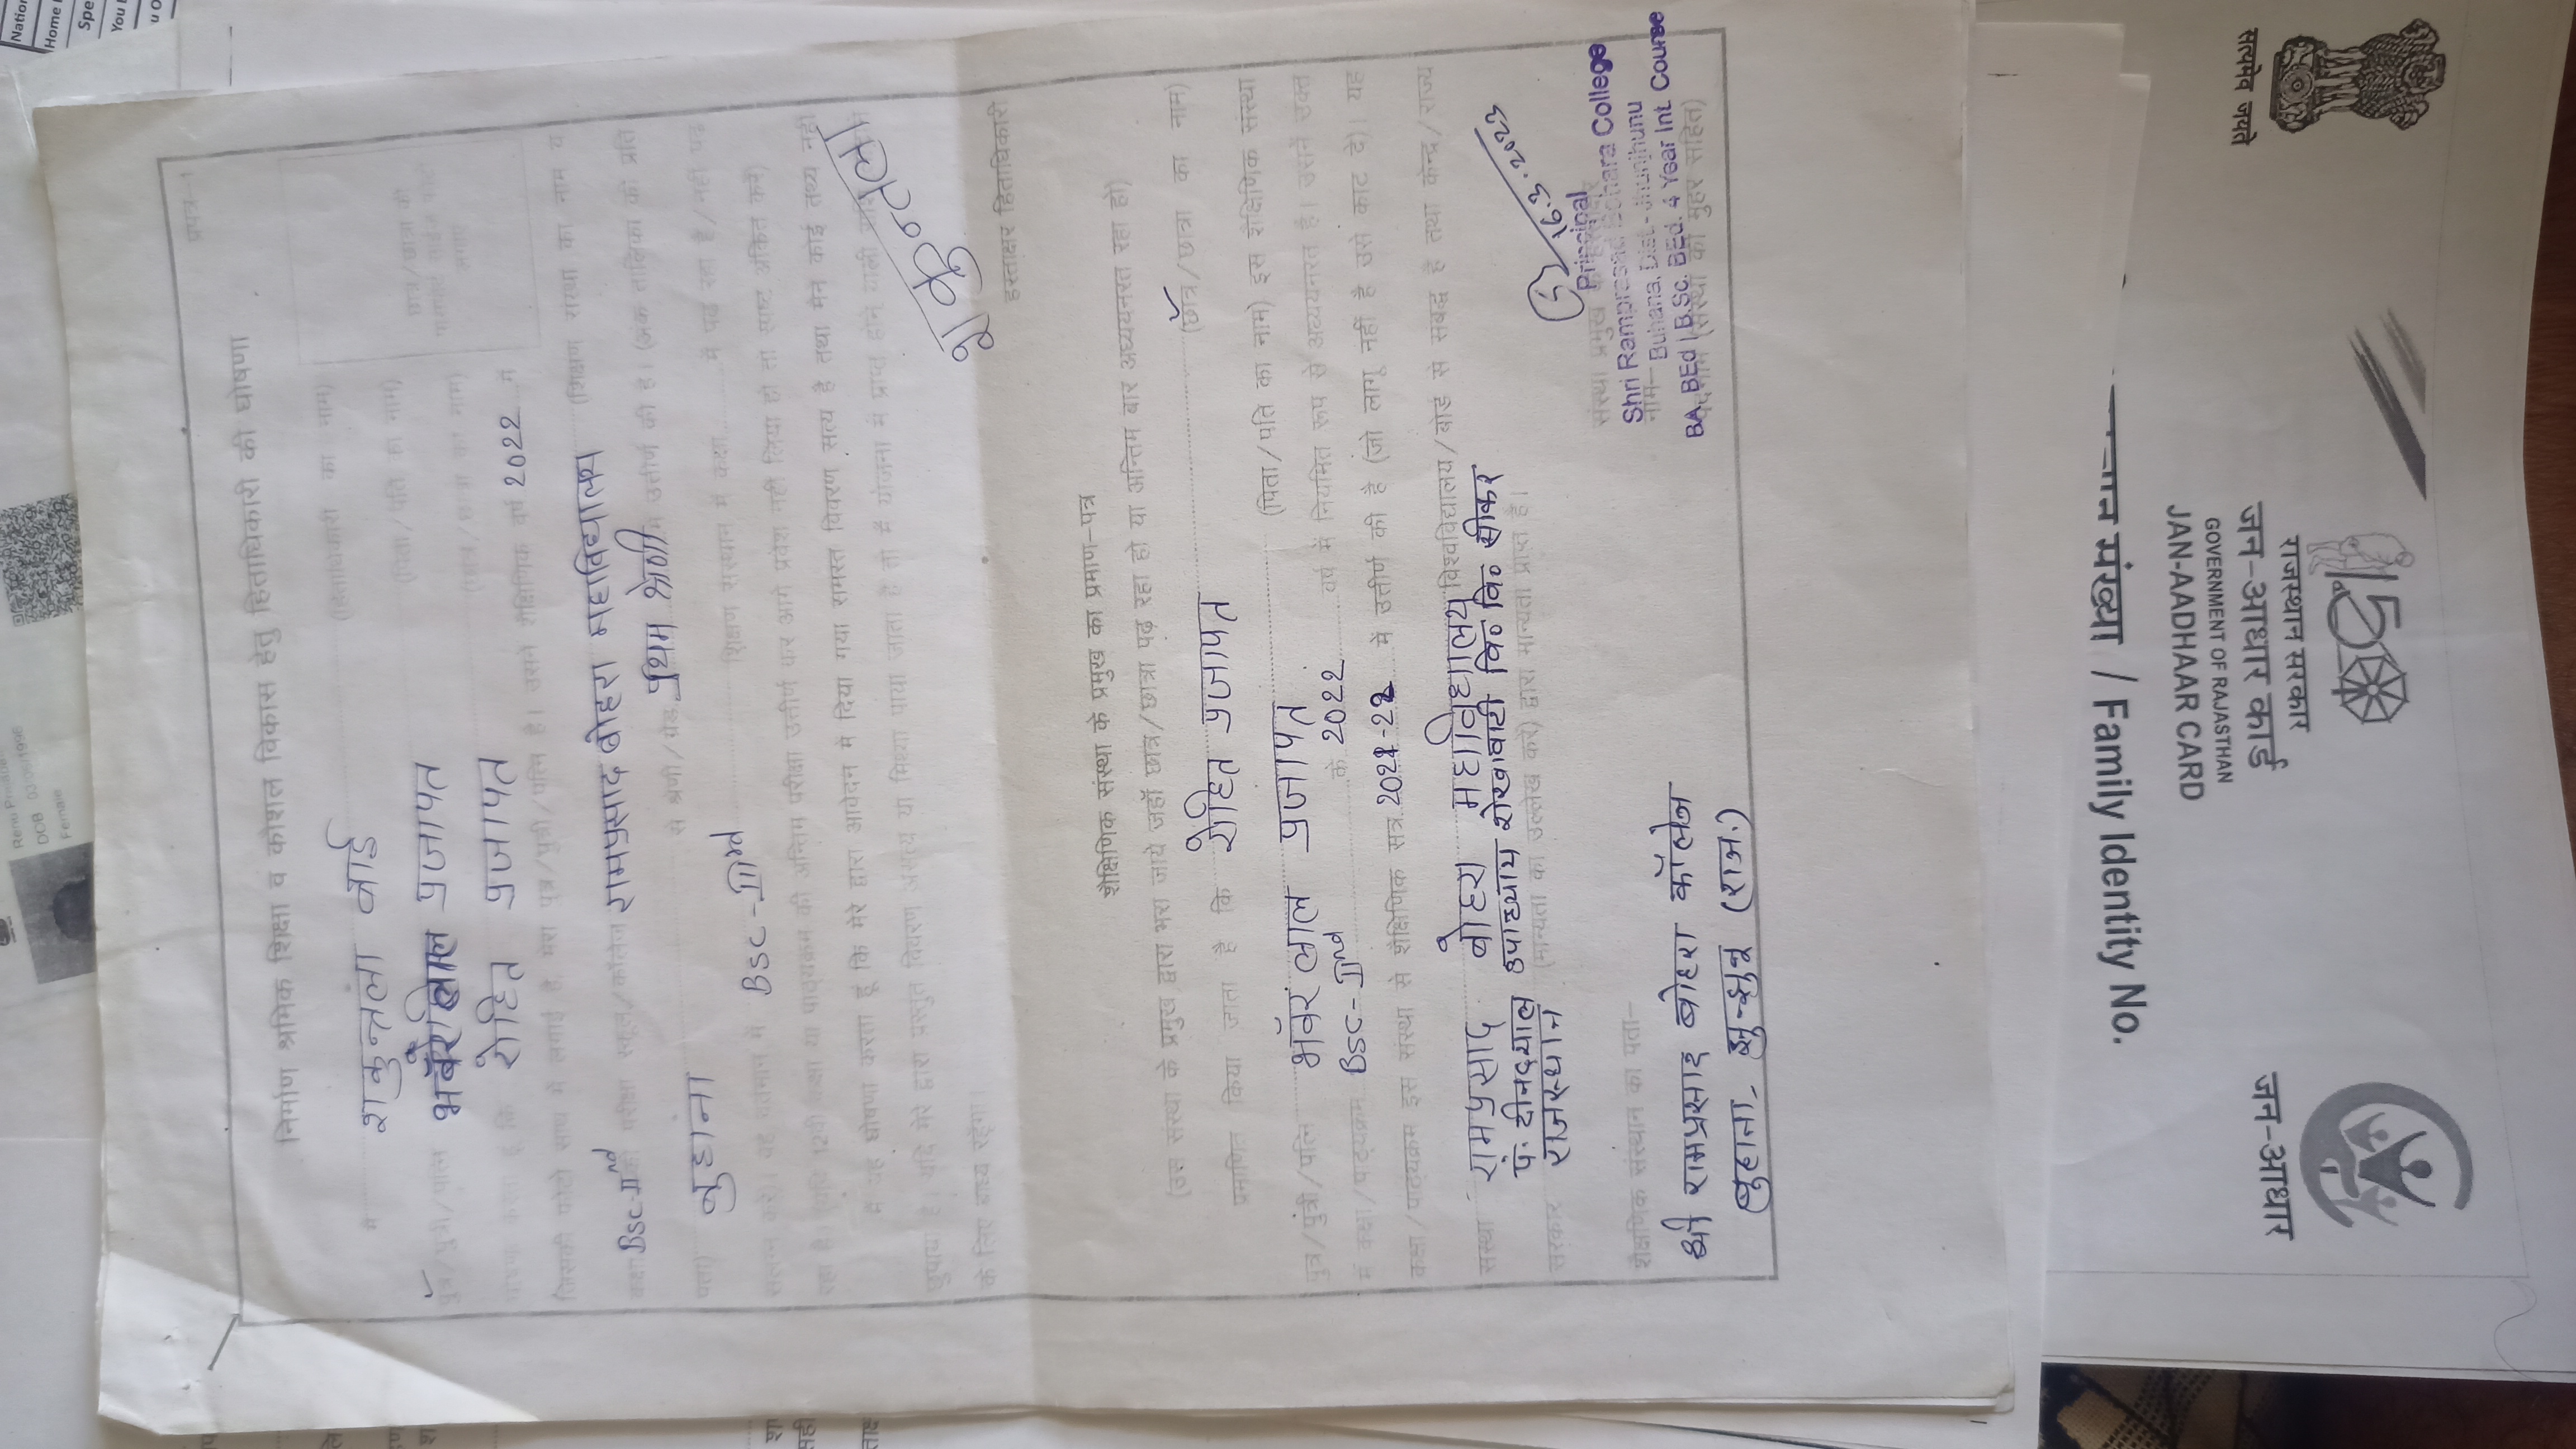 DOB 03/06/1996
Female
Nation
Home
Spe
You
प्रपत्र-1
निर्माण श्रमिक शिक्षा व कौशल विकास हेतु हिताधिकारी की घोषणा
मैं शकुन्तला बाई (हिताधिकारी का नाम)
पुत्र/पुत्री/पत्नि भवंर लाल प्रजापत (पिता/पति का नाम)
घोषणा करता हूं कि रोहित प्रजापत (छात्र/छात्रा का नाम)
छात्र/छात्रा की
पासपोर्ट साईज फोटो
लगाए
जिसकी फोटो साथ में लगाई है, मेरा पुत्र/पुत्री/पत्नि है। उसने शैक्षिणिक वर्ष 2022 में
कक्षा Bsc-IInd की परीक्षा स्कूल/कॉलेज रामप्रसाद बोहरा महाविद्यालय (शिक्षण संस्था का नाम व
पता) बुहाना से श्रेणी/ग्रेड प्रथम श्रेणी में उत्तीर्ण की है। (अंक तालिका की प्रति
सलंग्न करें)। वह वर्तमान में Bsc-IIIrd शिक्षण संस्थान में कक्षा में पढ़ रहा है/नहीं पढ़
रहा है। (यदि 12वीं कक्षा या पाठ्यक्रम की अन्तिम परीक्षा उत्तीर्ण कर आगे प्रवेश नहीं लिया हो तो स्पष्ट अंकित करें)
मैं यह घोषणा करता हूं कि मेरे द्वारा आवेदन में दिया गया समस्त विवरण सत्य है तथा मैंने कोई तथ्य नहीं
छुपाया है। यदि मेरे द्वारा प्रस्तुत विवरण असत्य या मिथ्या पाया जाता है तो मैं योजना में प्राप्त होने वाली राशि
के लिए बाध्य रहूँगा।
शकुन्तला
हस्ताक्षर हिताधिकारी
शैक्षिणिक संस्था के प्रमुख का प्रमाण-पत्र
(उस संस्था के प्रमुख द्वारा भरा जाये जहॉं छात्र/छात्रा पढ़ रहा हो या अन्तिम बार अध्ययनरत रहा हो)
प्रमाणित किया जाता है कि रोहित प्रजापत (छात्र/छात्रा का नाम)
पुत्र/पुत्री/पत्नि भवंर लाल प्रजापत (पिता/पति का नाम) इस शैक्षिणिक संस्था
में कक्षा/पाठ्यक्रम Bsc-IInd के 2022 वर्ष में नियमित रूप से अध्ययनरत है। उसने उक्त
कक्षा/पाठ्यक्रम इस संस्था से शैक्षिणिक सत्र 2021-22 में उत्तीर्ण की है (जो लागू नहीं है उसे काट दे)। यह
संस्था रामप्रसाद बोहरा महाविद्यालय विश्वविद्यालय/बोर्ड से सबद्ध है तथा केन्द्र/राज्य
पं. दीनदयाल उपाध्याय शेखावाटी वि० वि० सीकर
सरकार राजस्थान (मान्यता का उल्लेख करें) द्वारा मान्यता प्राप्त है।
16.3.2023
संस्था प्रमुख के हस्ताक्षर
Principal
Shri Ramprasad Bohara College
नाम-
Buhana, Dist.- Jhunjhunu
BA. BEd | B.Sc. BEd. 4 Year Int. Course
पदनाम (संस्था की मुहर सहित)
शैक्षणिक संस्थान का पता-
श्री रामप्रसाद बोहरा कॉलेज
बुहाना, झुन्झुनू (राज.)
संख्या / Family Identity No.
JAN-AADHAAR CARD
GOVERNMENT OF RAJASTHAN
जन-आधार कार्ड
राजस्थान सरकार
जन-आधार
सत्यमेव जयते